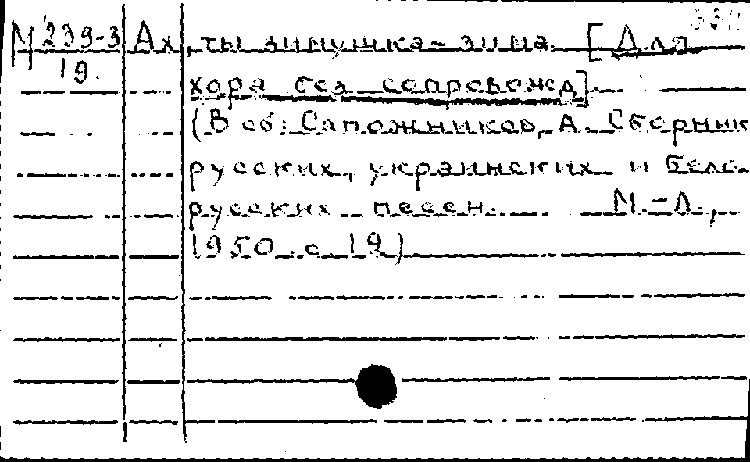 М 239-3 Ах, ты зимушка-зима. [Для
19. хора без сопровожд].
(В сб: Сапожников, А. Сборник
русских, украинских и бело-
русских песен. М.-Л.,
1950 с 19)